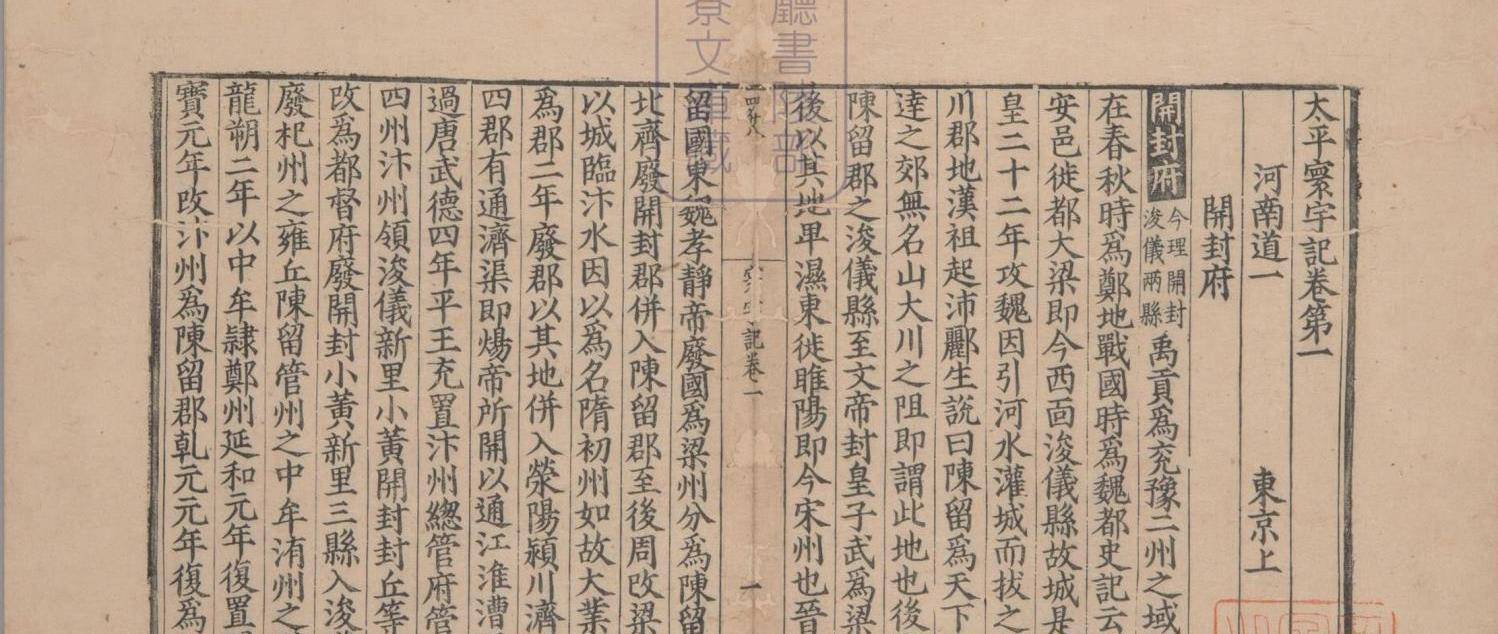 太平寰宇記卷第一
河南道一 東京上
開封府
開封府今理開封浚儀兩縣禹貢爲兖豫二州之域
在春秋時爲鄭地戰國時爲魏都史記云
安邑徙都大梁即今西面浚儀縣故城是
皇二十二年攻魏因引河水灌城而拔之
川郡地漢祖起沛酈生說曰陳留爲天下
逹之郊無名山大川之阻即謂此地也後
陳留郡之浚儀縣至文帝封皇子武爲梁
後以其地卑濕東徙睢陽即今宋州也晉
記卷一 一
留國東魏孝靜帝廢國爲梁州分爲陳留
北齊廢開封郡併入陳留郡至後周改梁
以城臨汴水因以爲名隋初州如故大業
爲郡二年廢郡以其地併入滎陽潁川濟
四郡有通濟渠即煬帝所開以通江淮漕
過唐武德四年平王充置汴州緫管府管
四州汴州領浚儀新里小黃開封封丘等
改爲都督府廢開封小黃新里三縣入浚
廢杞州之雍丘陳留管州之中牟洧州之
龍朔二年以中牟隷鄭州延和元年復置
寶元年改汴州爲陳留郡乹元元年復爲
廳書陵部
寮文庫藏